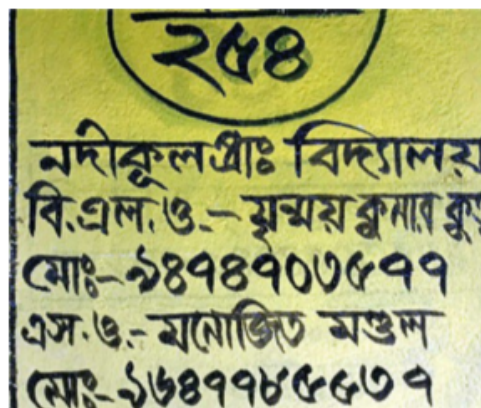 ২৫৪
নদীকূল প্রাঃ বিদ্যালয়
বি.এল.ও.- মৃন্ময় কুমার
মোঃ-৯৪৭৪৭০৩৫৭৭
এস.ও.- মনোজিত মণ্ডল
মোঃ-৯৬৪৭৭৮৫৫৩৭